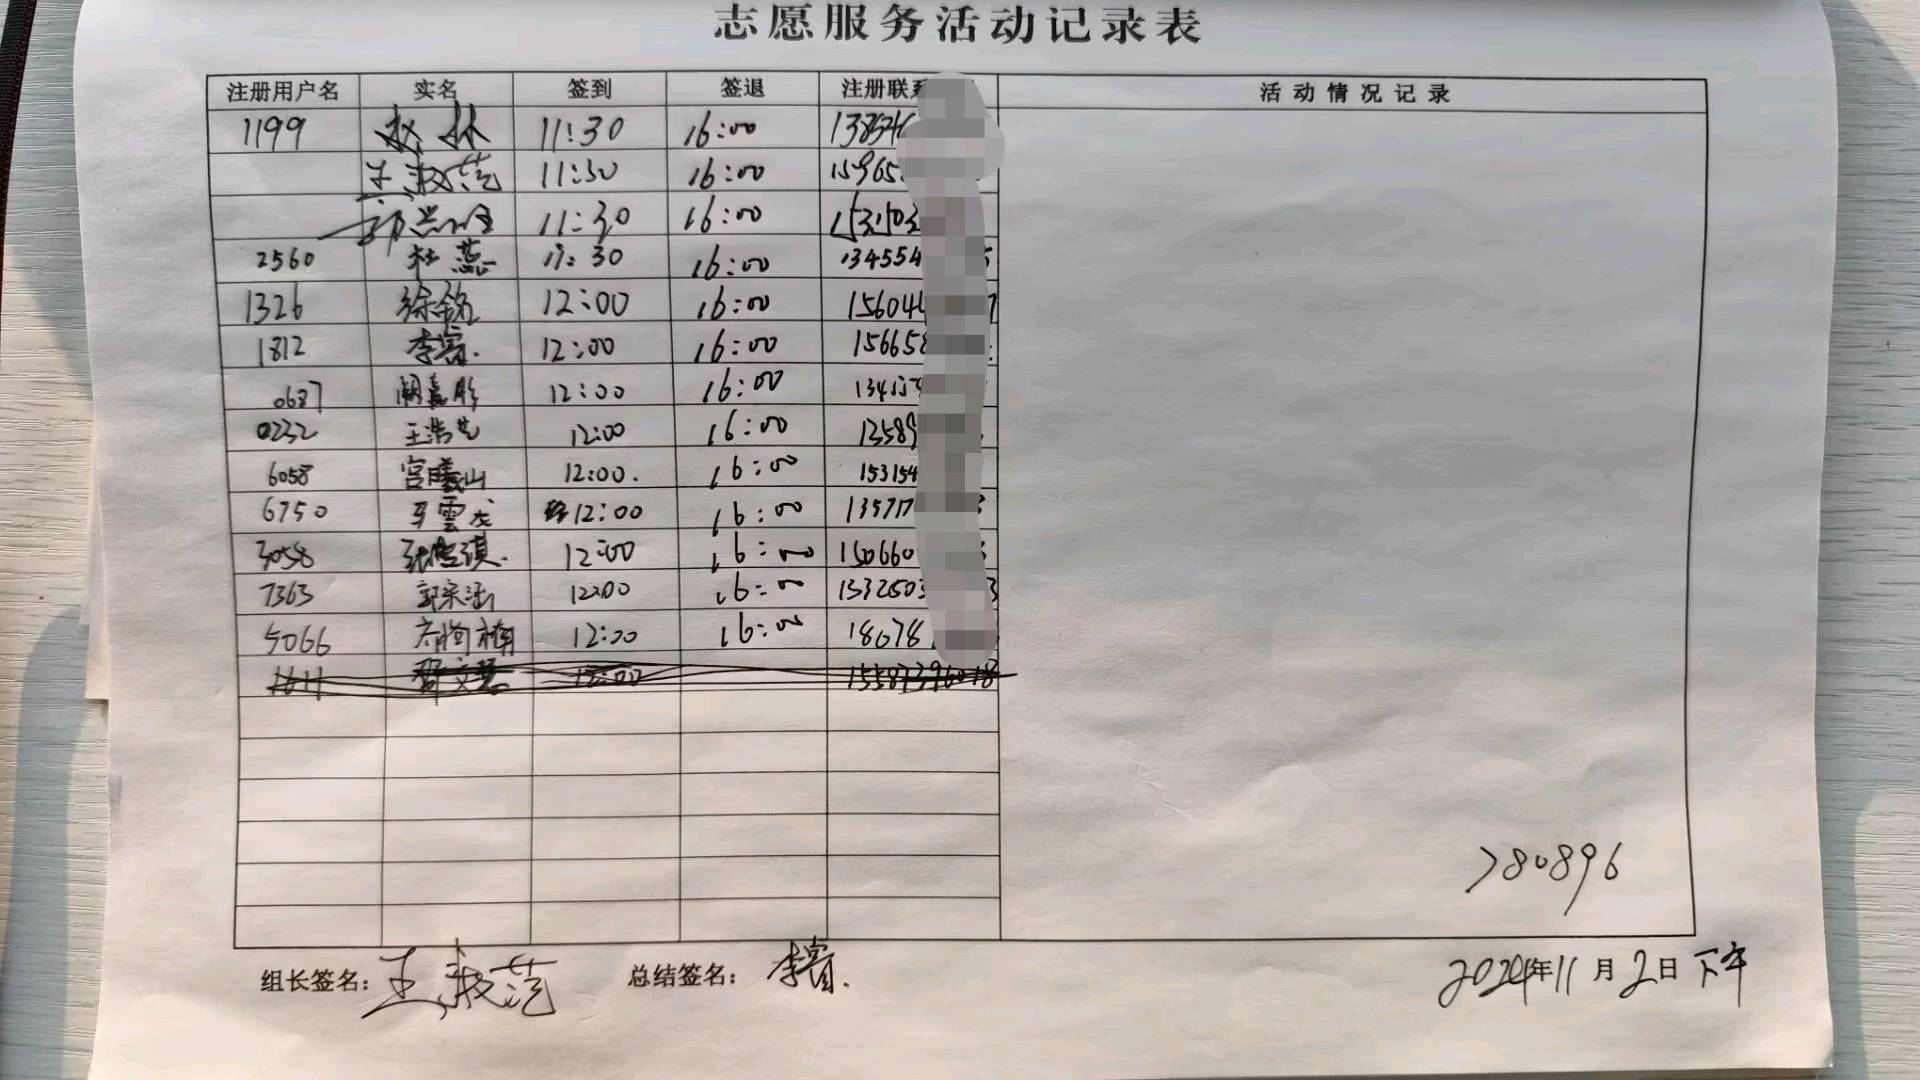 志愿服务活动记录表
注册用户名 实名 签到 签退 注册联系 活动情况记录
1199 赵林 11:30 16:00 138
王淑范 11:30 16:00 15965
11:30 16:00 1531503
2560 杜燕 11:30 16:00 134554
1326 徐铭 12:00 16:00 15604
1812 李宾. 12:00 16:00 15665
0687 12:00 16:00 134
0232 王浩 12:00 16:00 13589
6058 宫曦山 12:00. 16:00 153154
6750 雲龙 12:00 16:00 13571
3058 12:00 16:00 150660
7363 郭宗涵 12:00 16:00 1532503 3
5066 12:00 16:00 18678
780896
组长签名: 王淑范 总结签名: 李宾. 2024年11月2日下午